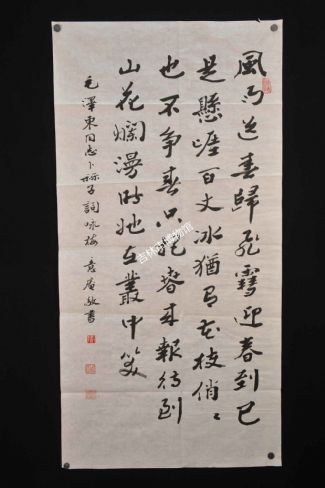 風雨送春歸飛雪迎春到已
是懸崖百丈冰猶有花枝俏〻
也不争春只把春來報待到
山花爛漫時她在叢中笑
毛澤東同志卜祘子詞咏梅 庵敬書
吉林市博物馆